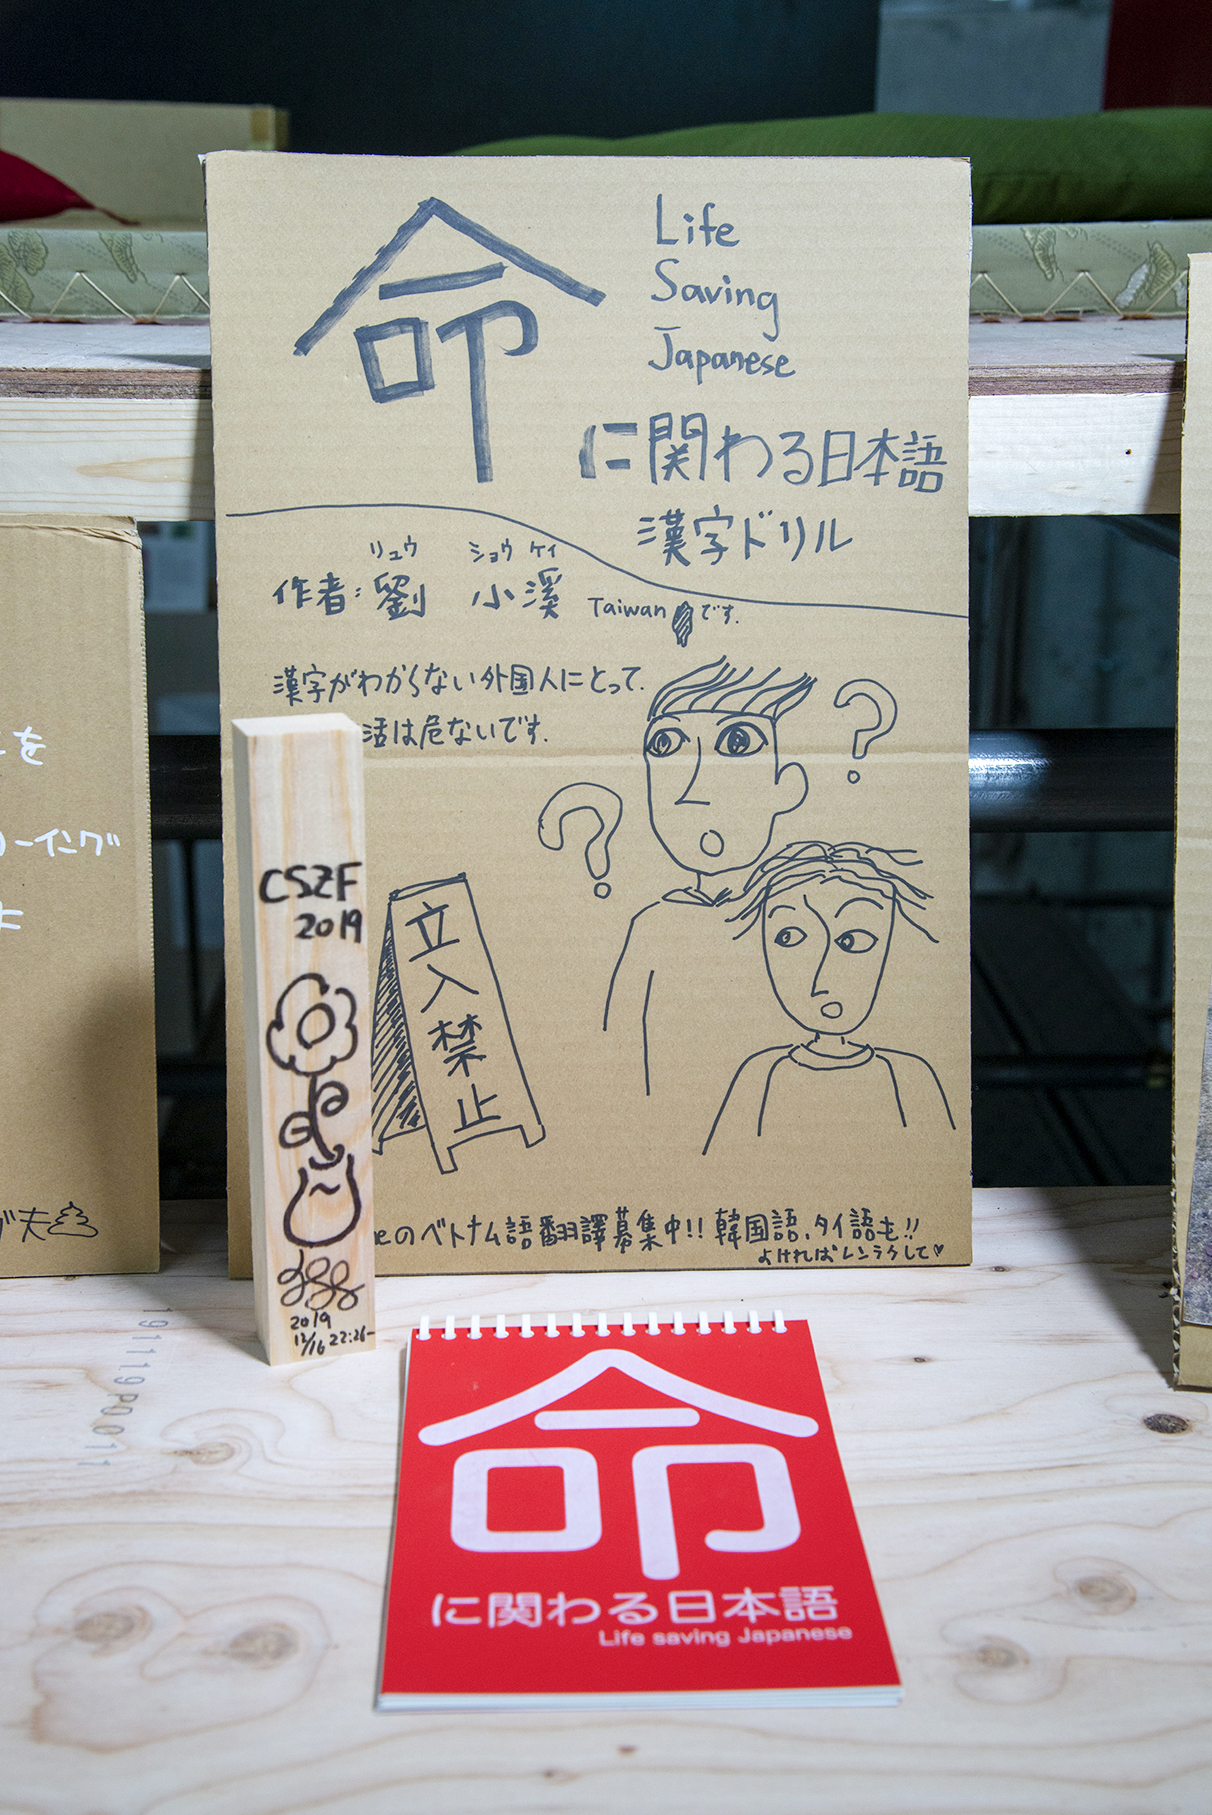 命
Life
Saving
Japanese
に関わる日本語
漢字ドリル
リュウ ショウ ケイ
作者:劉 小溪 Taiwanです.
漢字がわからない外国人にとって.
活は危ないです.
?
?
立入禁止
のベトナム語翻譯募集中!! 韓国語、タイ語も!!
よければレンラクして♡
CSZF
2019
2019
12/16 22:26-
を
ーイング
夫
191119P001
命
に関わる日本語
Life saving Japanese